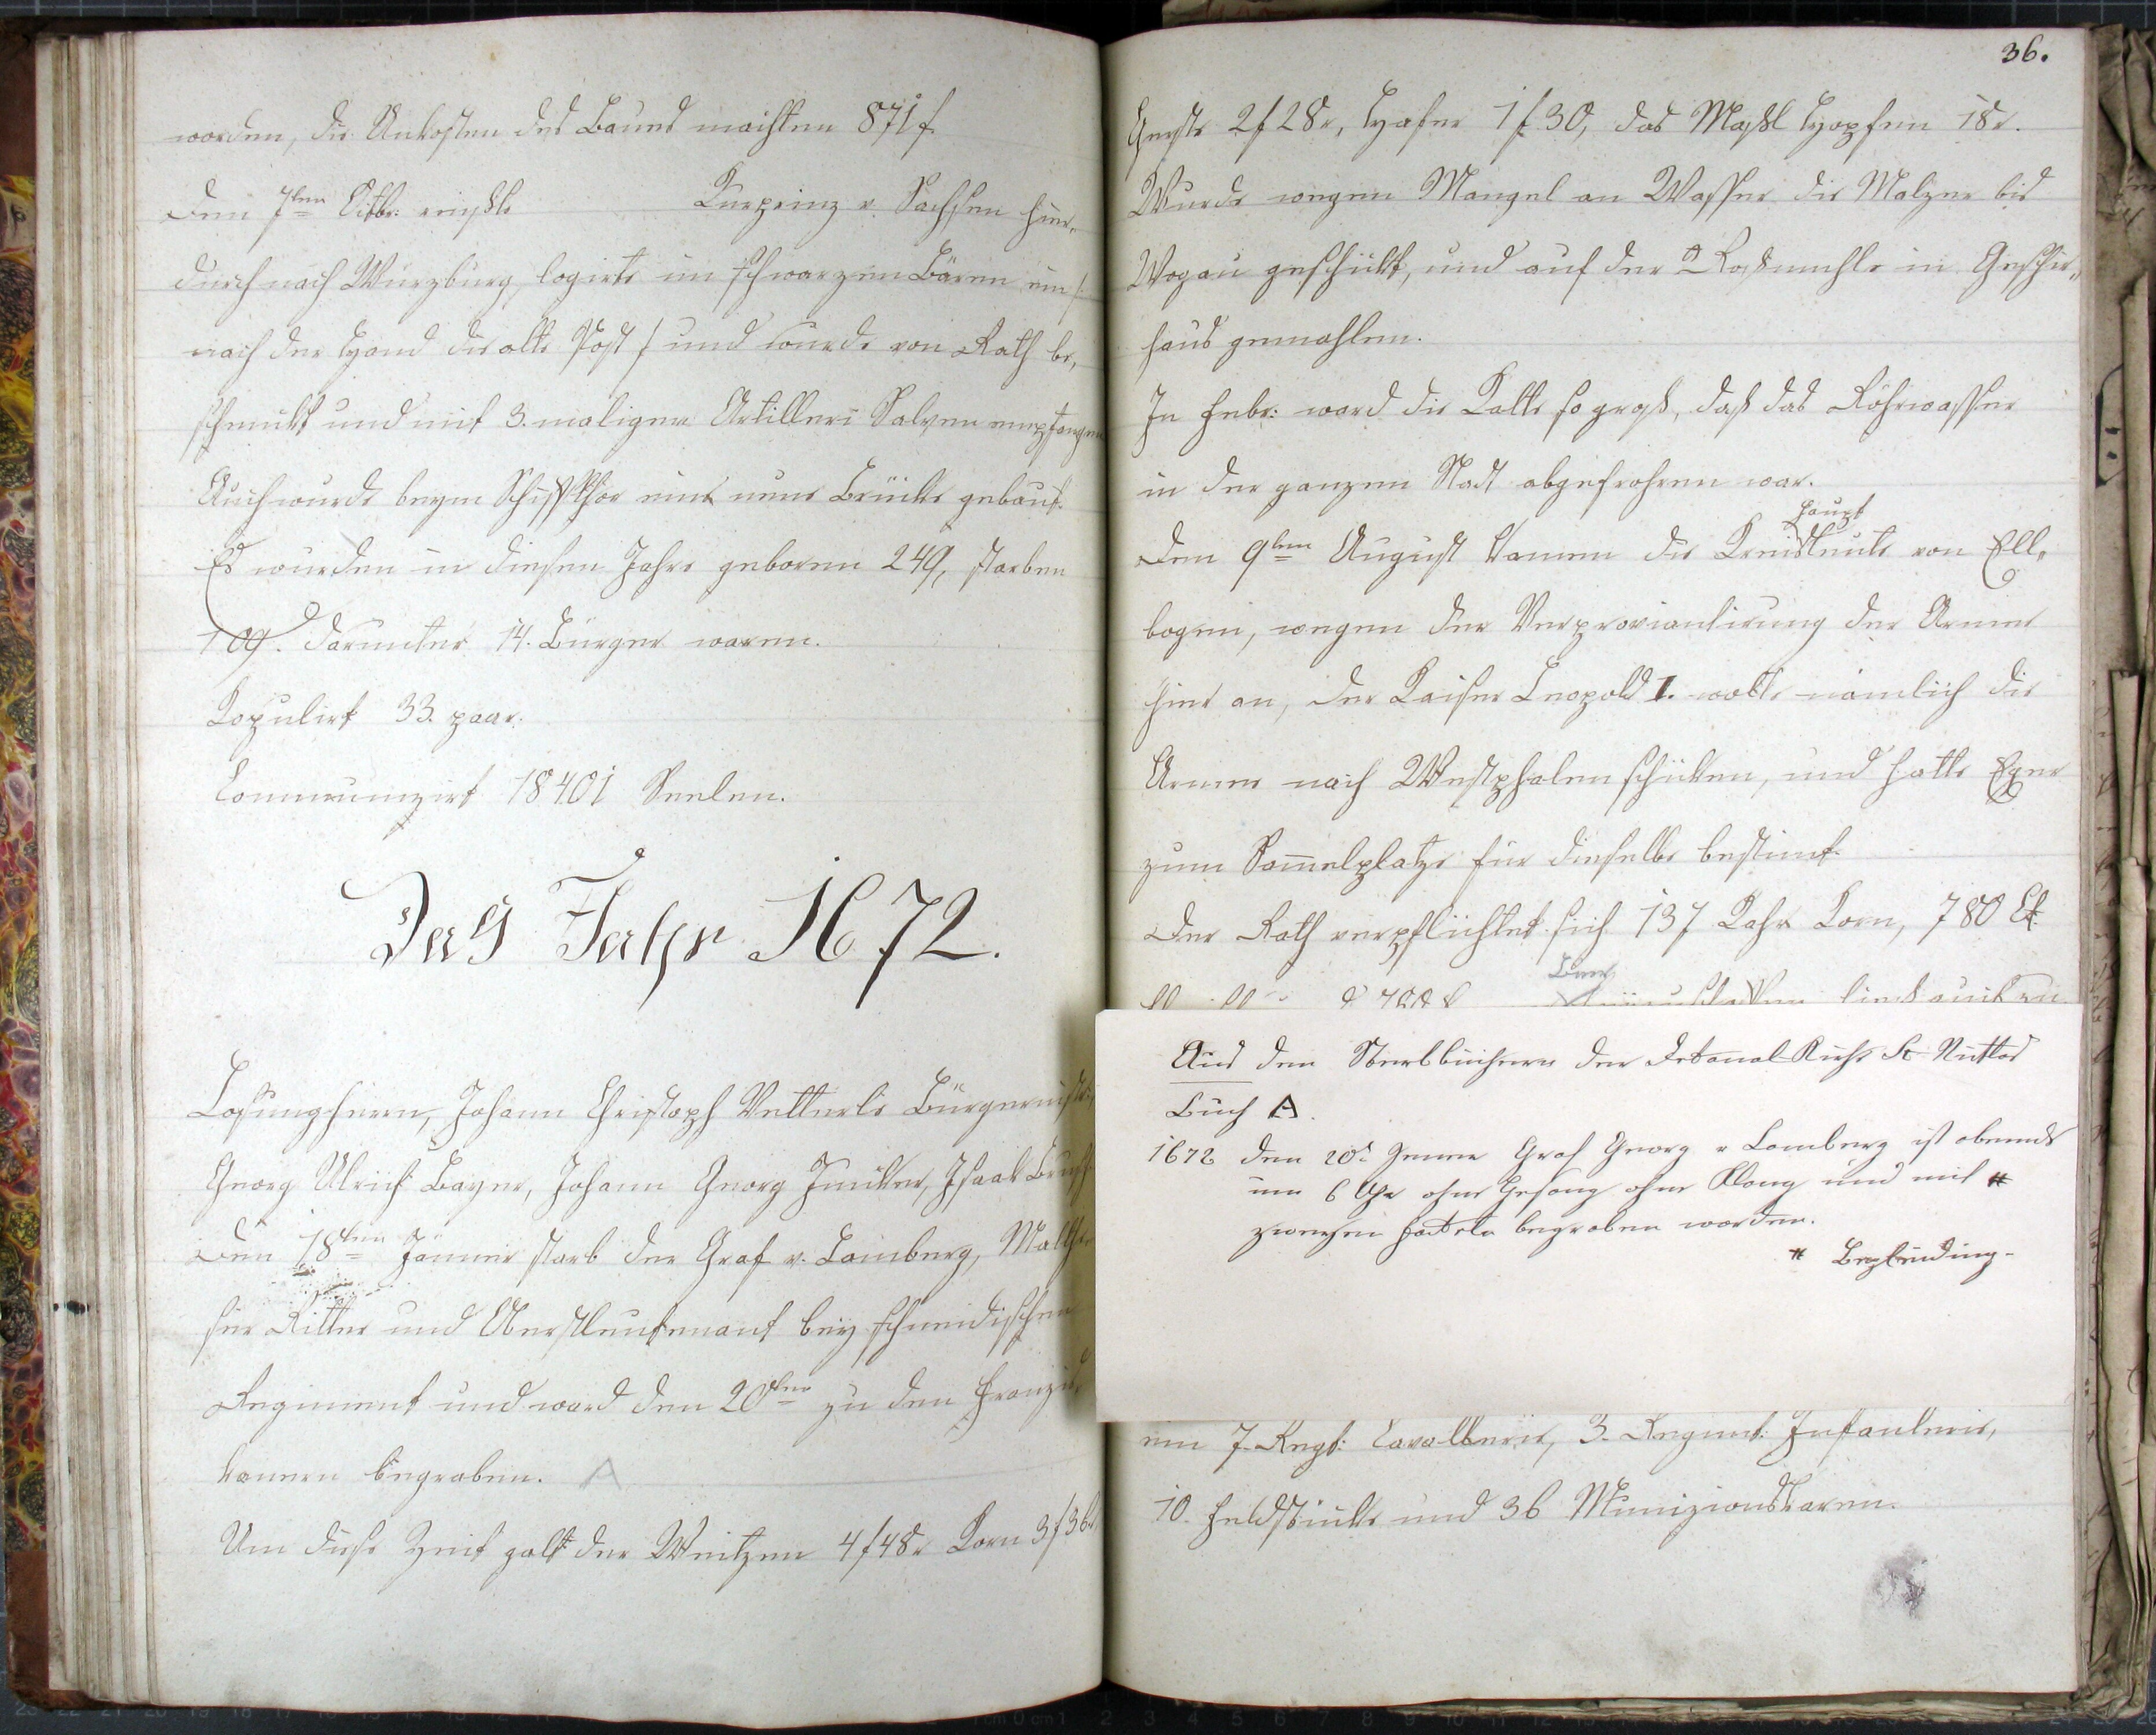 worden, die Unkosten des Baues machten 871 f.
Den 7ten Octbr: reißte Kurprinz v. Sachsen hier-
durch nach Würzburg, logirte im schwarzen Bären im /
nach der Hand die alte Post / und wurde von Rath be,
schenkt und mit 3. maliger Artillerie Salven empfangen
Auch wurde beym Schiffthor eine neue Brücke gebaut.
Es wurden in diesen Jahre geboren 249, starben
109. darunter 14. Bürger waren.
Kopulirt 33. paar.
Communizirt 18401 Seelen.
Das Jahr 1672.
Losungherrn, Johann Christoph Vetterle Bürgermeister
Georg Ulrich Bayer, Johann Georg Junker, Isaak
Den 18ten Jänner starb der Graf v. Lamberg, Malthe
ser Ritter und Oberstleutenant bey schneidischen
Regiment und ward den 20ten zu den Franzis
kanern begraben. A
Um diese Zeit galt der Weitzen 4 f 48 x Korn 3 f 36 x
36.
Gerste 2 f 28 x, Haber 1 f 30, das Maßl Hopfen 18 x.
Wurde wegen Mangel an Wasser die Malzer bis
Wogau geschickt, und auf der Roßmuhle in Geschir„
haus gemahlen.
In Febr: ward die Kalte so groß, daß das Röhrwasser
in der ganzen Stadt abgefrohren war.
Haupt
Den 9ten August kamen die Kreisleute von Ell,
bogen, wegen der Verproviantirung der Armee
hier an, der Kaiser Leopold I. wolte nämlich die
Armee nach Westphalen schicken, und hatte Eger
zum Sam̅elplatze für dieselbe bestimt.
Der Rath verpflichtet sich 137 Kahr Korn, 780 Ct
Aus den Sterbbüchern der Dekanal-Kirche St. Niklas
Buch A.
1672 den 20t Jenner Graf Georg v Lamberg ist abends
um 6 Uhr ohne Gesang ohne Klang und mit #
zweyen Fackeln begraben worden.
# Begleidung-
nen 7. Regt: Cavallerie, 3. Regimt: Infanterie,
10. Feldstücke und 36 Munizionskaren.